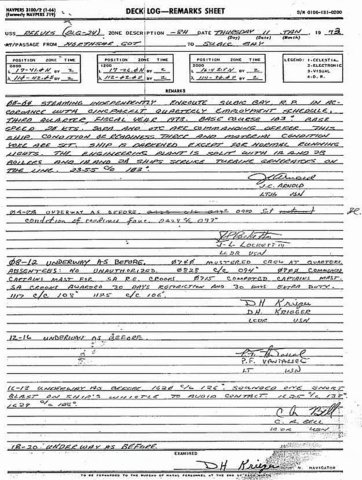 NAVPERS 3100/2 (1-66)
(Formerly NAVPERS 719)
DECK LOG—REMARKS SHEET
S/N 0106-131-0200
USS REEVES (DLG-24) ZONE DESCRIPTION -8H DATE THURSDAY 11 JAN 19 73
(Day) (Date) (Month)
AT/PASSAGE FROM NORTHSAR GOT TO SUBIC BAY
POSITION ZONE TIME POSITION ZONE TIME POSITION ZONE TIME
0800 1200 2000
BY BY BY
LEGEND: 1-CELESTIAL
2-ELECTRONIC
3-VISUAL
4-D.R.
REMARKS
00-04 STEAMING INDEPENDENTLY ENROUTE SUBIC BAY R.P. IN AC-
CORDANCE WITH CINCPACFLT QUARTERLY EMPLOYMENT SCHEDULE,
THIRD QUARTER, FISCAL YEAR 1973. BASE COURSE 183° BASE
SPEED KTS. SOPA AND OTC ARE COMMANDING OFFICER THIS
SHIP. CONDITION OF READINESS THREE AND MATERIAL CONDITION
YOKE ARE SET. SHIP IS DARKENED EXCEPT FOR NORMAL RUNNING
LIGHTS. THE ENGINEERING PLANT IS SPLIT WITH 1A AND 2B
BOILERS AND 1A AND 2A SHIPS SERVICE TURBINE GENERATORS ON
THE LINE. 2355 C/C 183°.
J.C. ARNOLD
LTJG USN
04-08 UNDERWAY AS BEFORE. Set
condition of readiness four.
J.L. LOCKETT IV
LCDR USN
08-12 UNDERWAY AS BEFORE. MUSTERED CREW AT QUARTERS
ABSENTEES: NO UNAUTHORIZED. 0828 C/C 094° COMMENCED
CAPTAINS MAST FOR SA R.E. CROOKE 0915 COMPLETED CAPTAINS MAST.
SA CROOKE AWARDED 30 DAYS RESTRICTION AND 30 DAYS EXTRA DUTY.
1117 C/C 108° 1125 C/C 106°.
D H Krieger
DH KRIEGER
LCDR USN
12-16 UNDERWAY AS BEFORE.
P.F.
LT USN
16-18 UNDERWAY AS BEFORE 1620 C/C 126° SOUNDED ONE SHORT
BLAST ON SHIP'S WHISTLE TO AVOID CONTACT. 1625 C/C 138°
1629 C/C 126°
C A Bell
C. A. BELL
USN
18-20 UNDERWAY AS BEFORE
EXAMINED
D H Krieger
NAVIGATOR
TO BE FORWARDED TO THE BUREAU OF NAVAL PERSONNEL AT THE END OF EACH MONTH